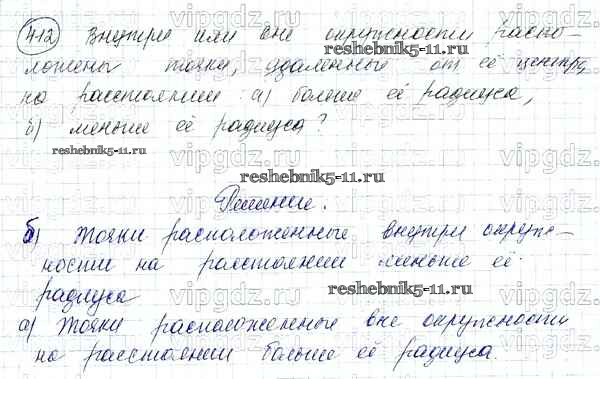 412 Внутри или вне окружности распо-
ложены точки, удаленные от её центра,
на расстоянии: а) больше её радиуса,
б) меньше её радиуса?
Решение.
б) Точки расположенные внутри окруж-
ности на расстоянии меньше её
радиуса
а) Точки расположенные вне окружности
на расстоянии больше её радиуса.
vipgdz.ru
reshebnik5-11.ru
reshebnik5-11.ru
reshebnik5-11.ru
reshebnik5-11.ru